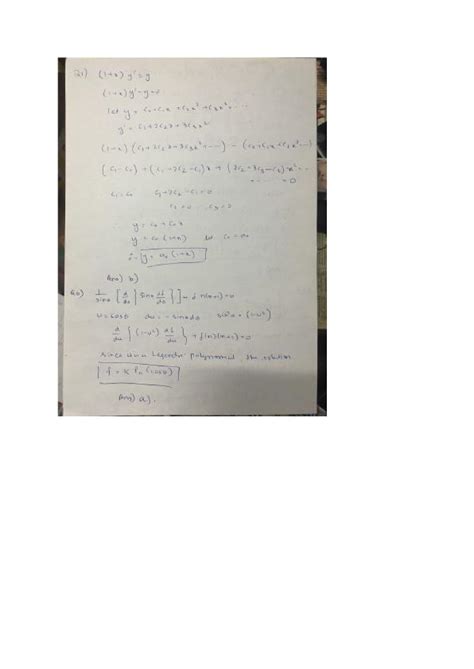 21) (1+x) y' = y
(1+x) y' - y = 0
let y = c₀ + c₁x + c₂x² + c₃x³ + ...
y' = c₁ + 2c₂x + 3c₃x²
(1+x) (c₁ + 2c₂x + 3c₃x² + ...) - (c₀ + c₁x + c₂x² ...)
(c₁ - c₀) + (c₁ + 2c₂ - c₁)x + (2c₂ + 3c₃ - c₂) x² ...
= 0
c₁ = c₀ c₁ + 2c₂ - c₁ = 0
c₂ = 0
∴ y = c₀ + c₀x
y = c₀ (1+x) let c₀ = a₀
y = a₀ (1+x)
Ans) b)
1/sinθ [ d/dθ { sinθ df/dθ } ] + f n(n+1) = 0
u = cosθ du = - sinθ dθ sin²θ = (1-u²)
d/du { (1-u²) df/du } + f(n)(n+1) = 0
Since Legendre polynomial the solution
f = k Pₙ (cosθ)
Ans) a).